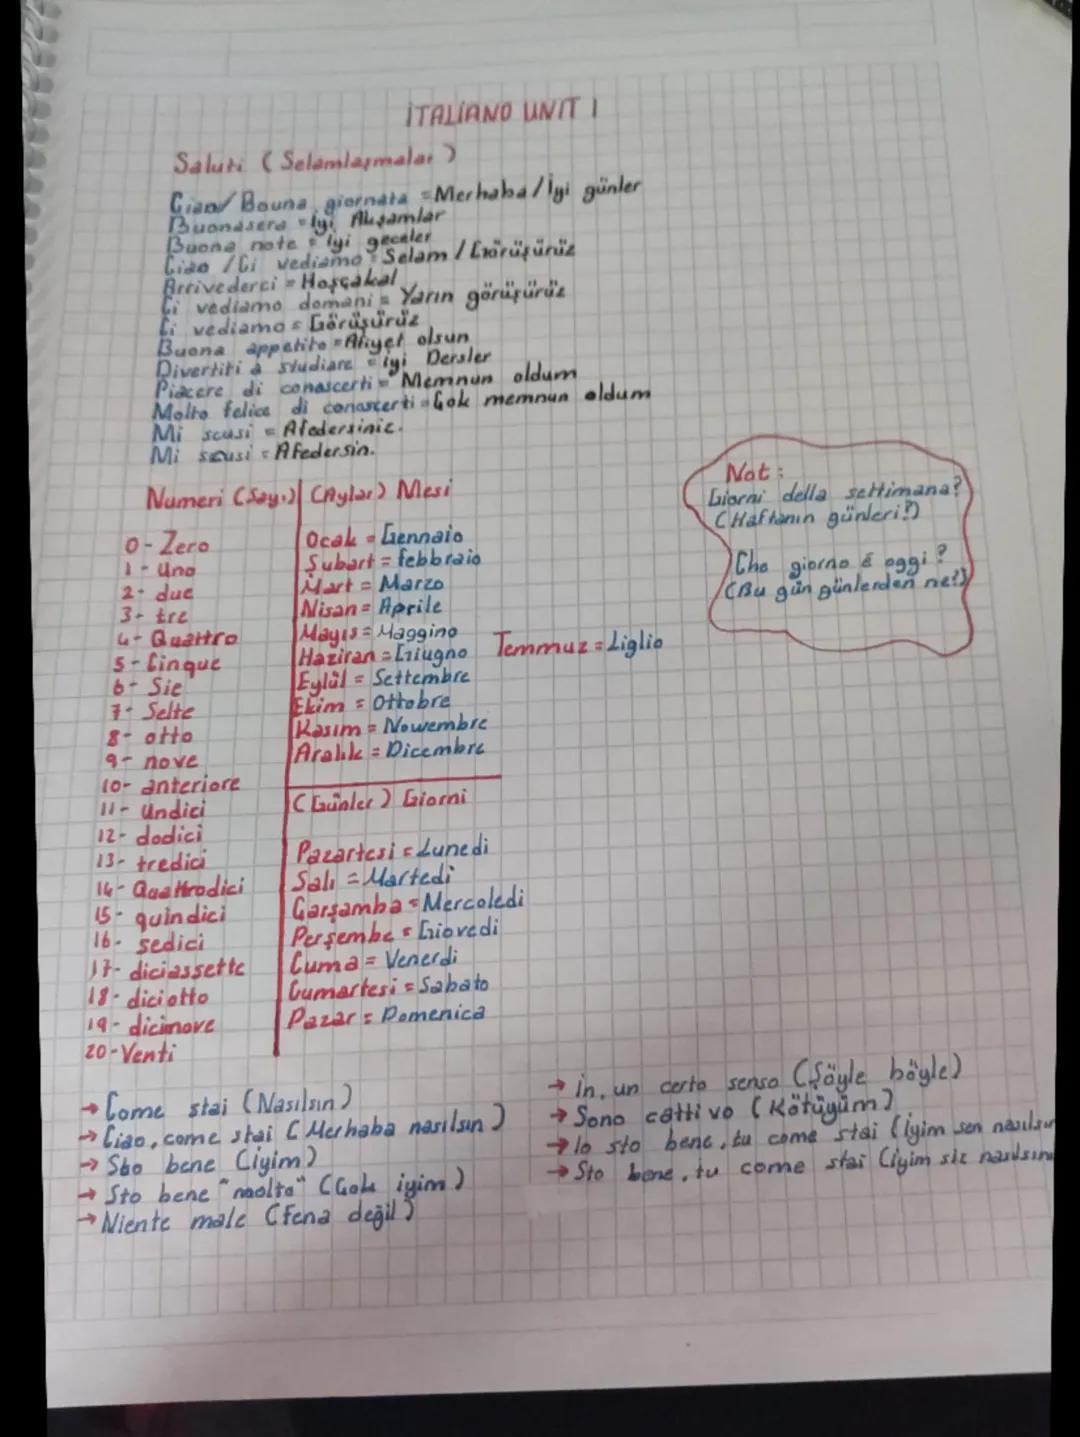 İTALİANO UNIT 1
Saluti (Selamlaşmalar)
Ciao/Bouna giornata = Merhaba/İyi günler
Buonasera = İyi Akşamlar
Buona note = İyi geceler
Ciao /Ci vediamo = Selam / Görüşürüz
Arrivederci = Hoşçakal
Ci vediamo domani = Yarın görüşürüz
Ci vediamo = Görüşürüz
Buona appetito = Afiyet olsun
Divertiti a studiare = iyi Dersler
Piacere di conascerti = Memnun oldum
Molto felice di conoscerti = Çok memnun oldum
Mi scusi = Afedersiniz.
Mi scusi = Afedersin.
Numeri (Sayı)
0- Zero
1- Uno
2- due
3- tre
4- Quattro
5- Cinque
6- Sie
7- Selte
8- otto
9- nove
10- anteriore
11- Undici
12- dodici
13- tredici
14- Quattrodici
15- quindici
16- sedici
17- diciassette
18- diciotto
19- dicinove
20- Venti
(Aylar) Mesi
Ocak = Gennaio
Şubart = febbraio
Mart = Marzo
Nisan = Aprile
Mayıs = Maggino
Haziran = Giugno
Temmuz = Liglio
Eylül = Settembre
Ekim = Ottobre
Kasım = Nowembre
Aralık = Dicembre
(Günler) Giorni
Pazartesi = Lunedi
Salı = Martedi
Çarşamba = Mercoledi
Perşembe = Giovedi
Cuma = Venerdi
Cumartesi = Sabato
Pazar = Domenica
Not:
Giorni della settimana?
(Haftanın günleri?)
Che giorno é oggi?
(Bu gün günlerden ne?)
→ Come stai (Nasılsın)
→ Ciao, come stai (Merhaba nasılsın)
→ Sto bene (iyim)
→ Sto bene "molto" (Çok iyim)
→ Niente male (fena değil)
→ in, un certo senso (Şöyle böyle)
→ Sono cattivo (Kötüyüm)
→ Io sto bene, tu come stai (iyim sen nasılsın
→ Sto bene, tu come stai (iyim siz nasılsını